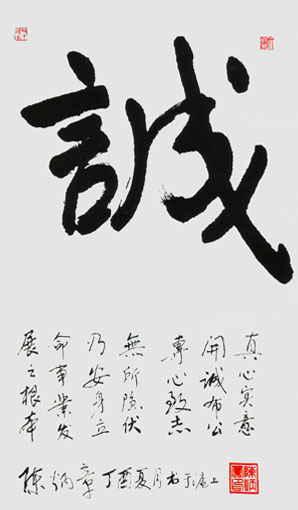 誠
真心實意
開誠布公
專心致志
無所隐伏
乃安身立
命事業发
展之根本
陳炳章丁酉夏月书于滬上